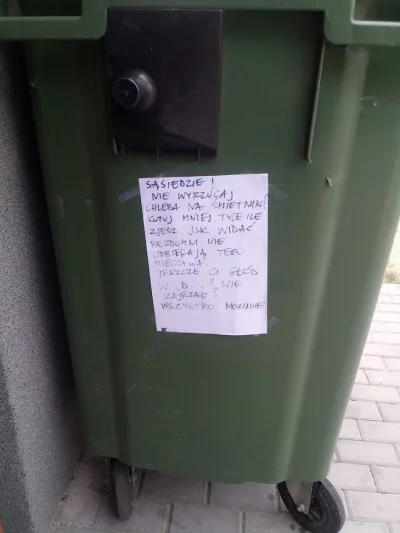 SĄSIEDZIE!
NIE WYRZUCAJ
CHLEBA NA ŚMIETNIK!
KUPUJ MNIEJ TYLE ILE
ZJESZ JAK WIDAĆ
BEZDOMNI NIE
ODBIERAJĄ TEGO
PIECZYWA.
JESZCZE CI GŁÓD
W D..." NIE
ZAJRZAŁ?
WSZYSTKO MOŻLIWE!